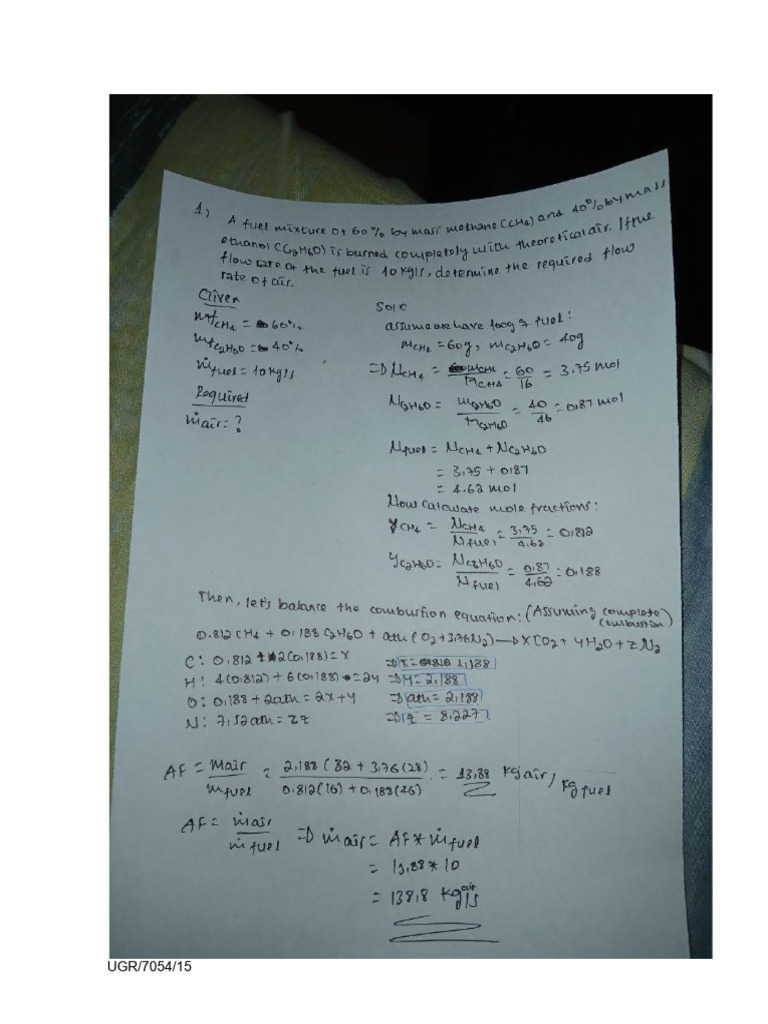 1) A fuel mixture of 60% by mass methane (CH4) and 40% by mass
ethanol (C2H6O) is burned completely with theoretical air. If the
flow rate of the fuel is 10 kg/s, determine the required flow
rate of air.
Given
mfCH4 = 60%
mfC2H6O = 40%
ṁfuel = 10 kg/s
Required
ṁair = ?
Soln
assume we have 100g of fuel:
mCH4 = 60g, mC2H6O = 40g
=> NCH4 = mCH4/MCH4 = 60/16 = 3.75 mol
NC2H6O = mC2H6O/MC2H6O = 40/46 = 0.87 mol
Nfuel = NCH4 + NC2H6O
= 3.75 + 0.87
= 4.62 mol
Now calculate mole fractions:
yCH4 = NCH4/Nfuel = 3.75/4.62 = 0.812
yC2H6O = NC2H6O/Nfuel = 0.87/4.62 = 0.188
Then, let's balance the combustion equation: (Assuming complete combustion)
0.812 CH4 + 0.188 C2H6O + ath (O2 + 3.76N2) → xCO2 + yH2O + zN2
C: 0.812 + 2(0.188) = x => x = 1.188
H: 4(0.812) + 6(0.188) = 2y => y = 2.188
O: 0.188 + 2ath = 2x + y => ath = 2.188
N: 7.52ath = 2z => z = 8.227
AF = mair/mfuel = 2.188 (32 + 3.76(28))/0.812(16) + 0.188(46) = 13.88 kg air/kg fuel
AF = ṁair/ṁfuel => ṁair = AF * ṁfuel
= 13.88 * 10
= 138.8 kg air/s
UGR/7054/15